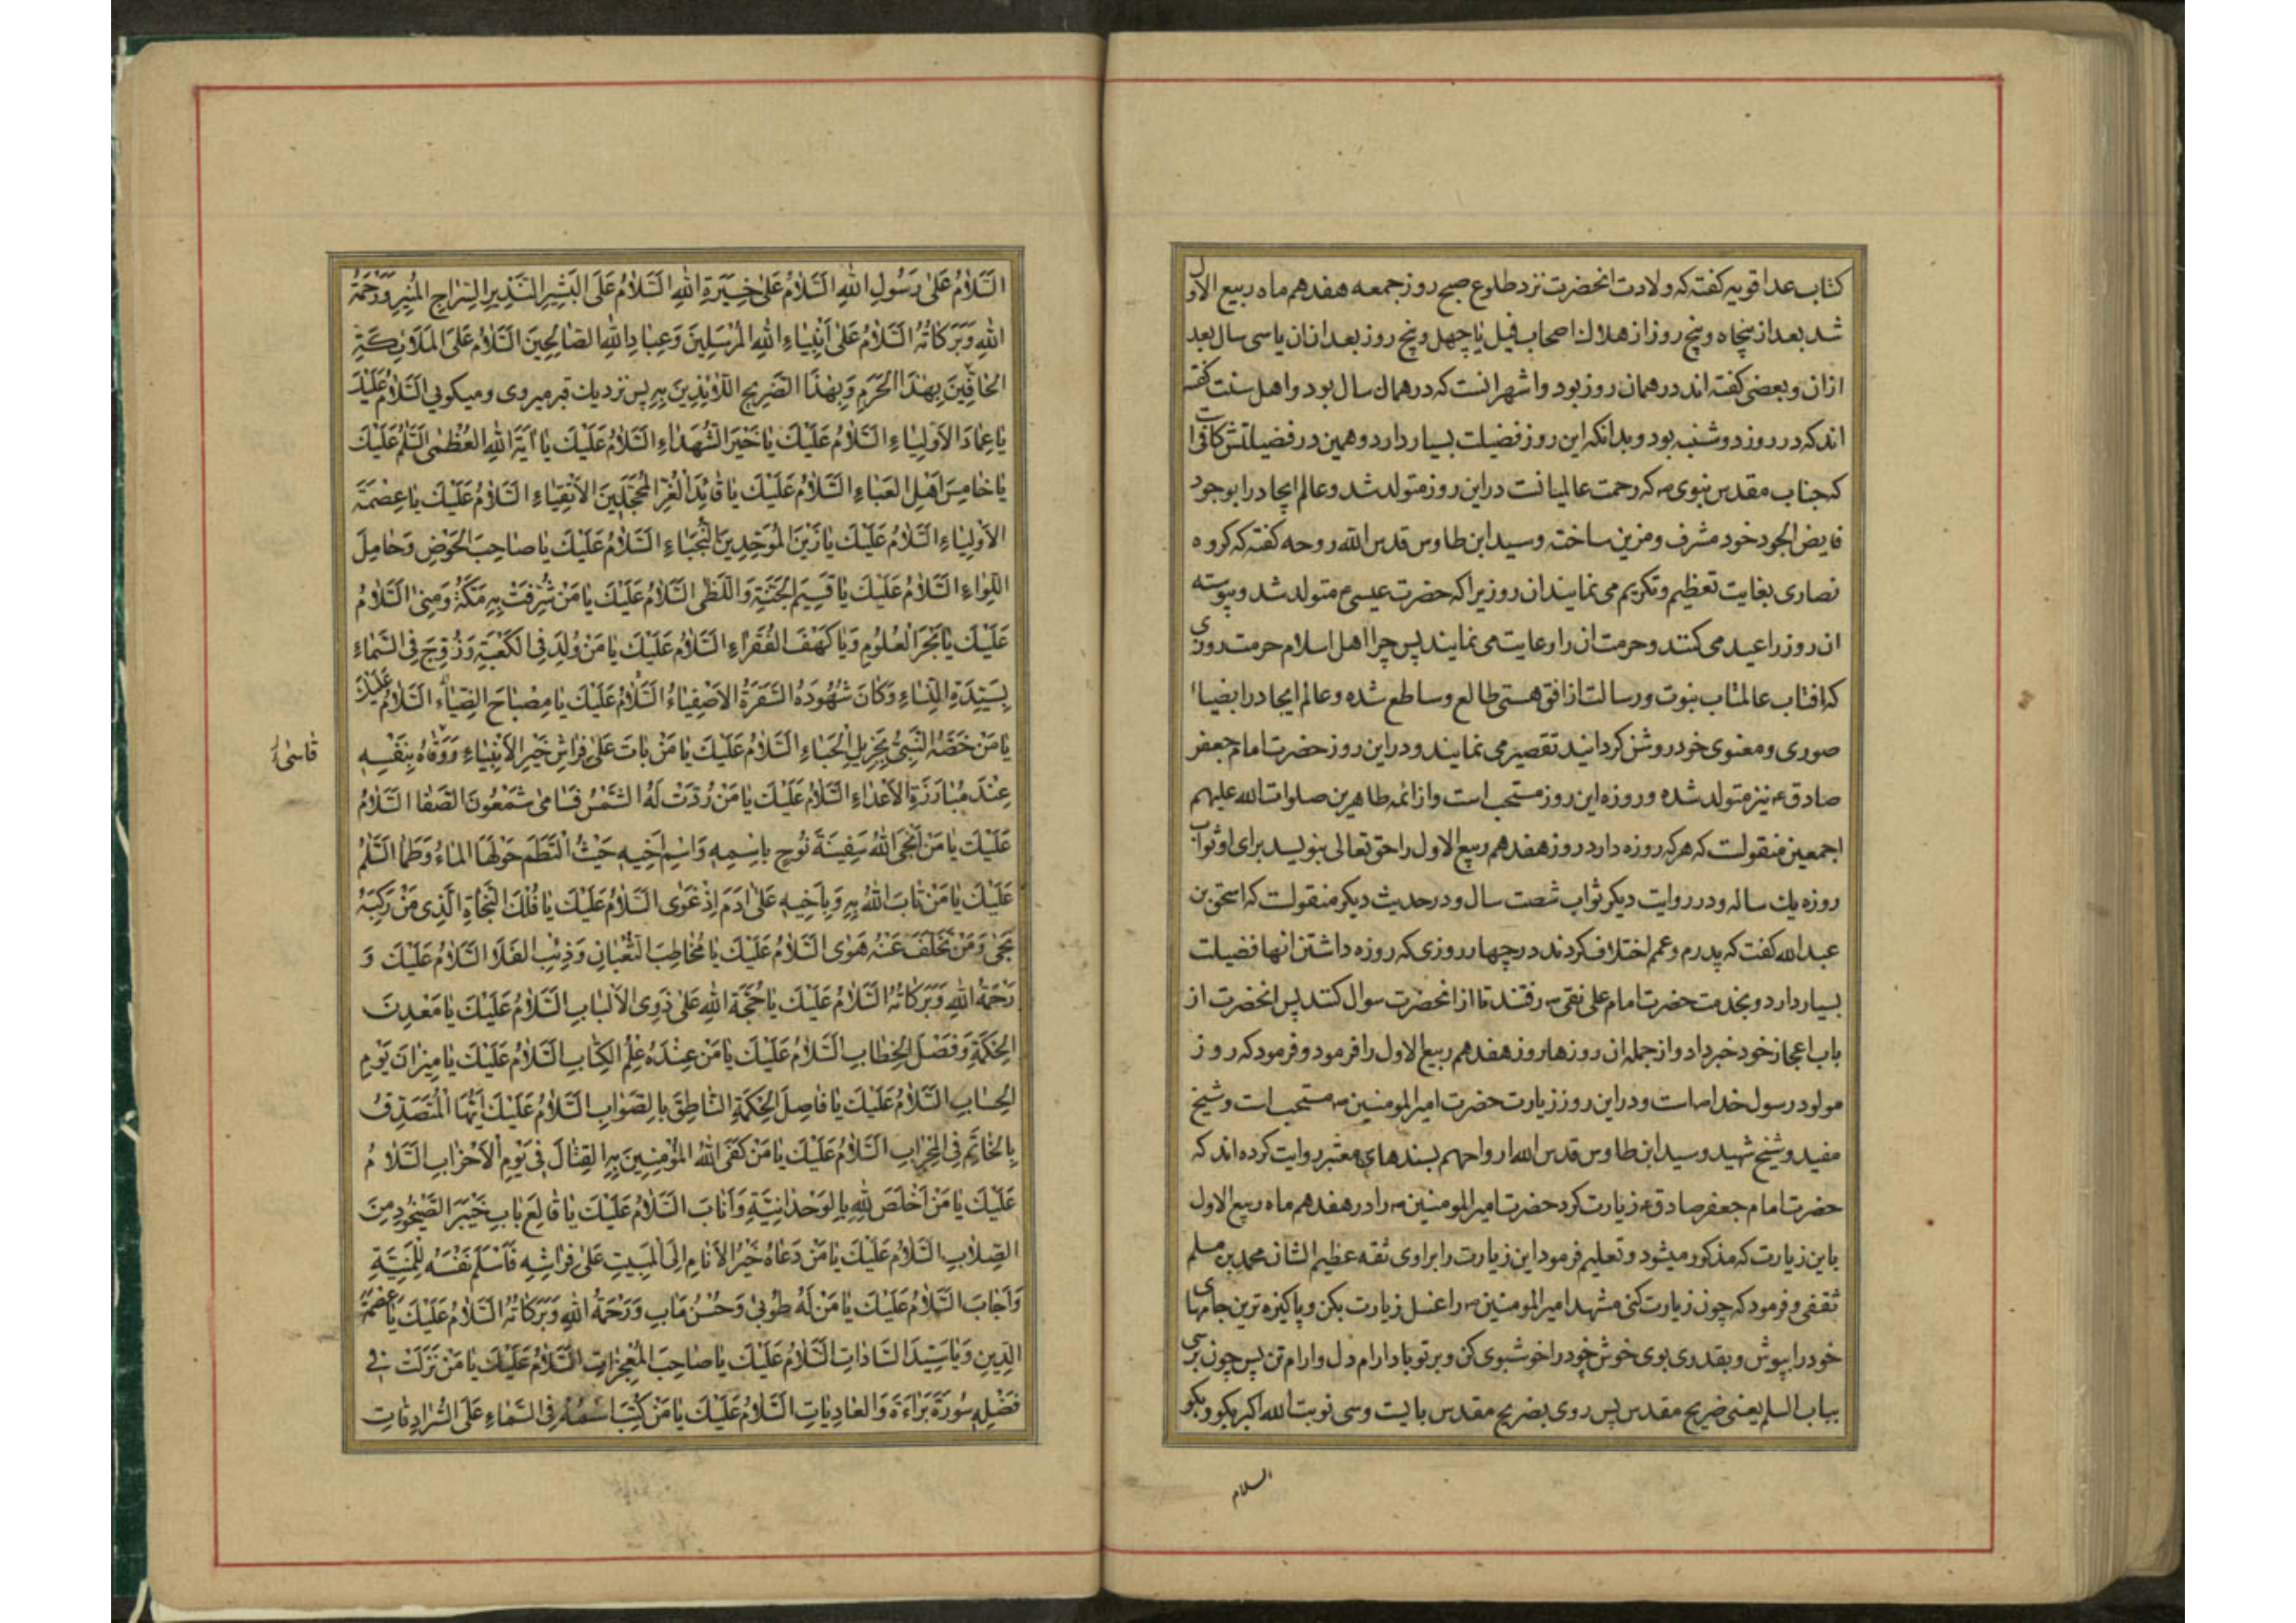 کتاب عدد القویه کفته که ولادت انحضرت نزد طلوع صبح روز جمعه هفدهم ماه ربیع الاول
شد بعد از پنجاه و پنج روز از هلاك اصحاب فیل یا چهل و پنج روز بعد ازان یا سی سال بعد
ازان و بعضی کفته اند در همان روز بود و اشهر انست که در همان سال بود و اهل سنت کفته
اند که در روز دوشنبه بود و بدانکه این روز فضیلت بسیار دارد و همین در فضیلتش کافی است
که جناب مقدس نبوی ص که رحمت عالمیانست دراین روز متولد شد و عالم ایجاد را بوجود
فایض الجود خود مشرف و مزین ساخته و سید ابن طاوس قدس الله روحه کفته که کروه
نصاری بغایت تعظیم و تکریم می نمایند ان روزیرا که حضرت عیسی ع متولد شد و پیوسته
ان روز را عید می کنند و حرمت ان را رعایت می نمایند پس چرا اهل اسلام حرمت روزی
که افتاب عالمتاب نبوت و رسالت از افق هستی طالع و ساطع شده و عالم ایجاد را بضیاء
صوری و معنوی خود روشن کردانید تقصیر می نمایند و دراین روز حضرت امام جعفر
صادق ع نیز متولد شده و روزه این روز مستحب است و از ائمه طاهرین صلوات الله علیهم
اجمعین منقولست که هر که روزه دارد روز هفدهم ربیع الاول را حق تعالی بنویسد برای او ثواب
روزه یك ساله و در روایت دیکر ثواب شصت سال و در حدیث دیکر منقولست که اسحق بن
عبد الله کفت که پدرم و عمم اختلاف کردند در چهار روزی که روزه داشتن انها فضیلت
بسیار دارد و بخدمت حضرت امام علی نقی ع رفتند تا از انحضرت سوال کنند پس انحضرت از
باب اعجاز خود خبر داد و از جمله ان روزها روز هفدهم ربیع الاول را فرمود و فرمود که روز
مولود رسول خدا ص است و دراین روز زیارت حضرت امیر المومنین ع مستحب است و شیخ
مفید و شیخ شهید و سید ابن طاوس قدس الله ارواحهم بسندهای معتبر روایت کرده اند که
حضرت امام جعفر صادق ع زیارت کرد حضرت امیر المومنین ع را در هفدهم ماه ربیع الاول
باین زیارت که مذکور میشود و تعلیم فرمود این زیارت را براوی ثقه عظیم الشان محمد بن مسلم
ثقفی و فرمود که چون زیارت کنی مشهد امیر المومنین ع را غسل زیارت بکن و پاکیزه ترین جامهای
خود را بپوش و بقدری بوی خوش خود را خوشبوی کن و بر تو باد ارام دل و ارام تن پس چون برسی
بباب السلم یعنی ضریح مقدس پس روی بضریح مقدس بایست و سی نوبت الله اکبر بکو و بکو
السلام
اَلسَّلامُ عَلىٰ رَسُولِ اللهِ اَلسَّلامُ عَلىٰ خِيَرَةِ اللهِ اَلسَّلامُ عَلَى البَشِيرِ النَّذِيرِ السِّراجِ المُنِيرِ وَرَحْمَةُ
اللهِ وَبَرَكاتُهُ اَلسَّلامُ عَلىٰ أَنْبِياءِ اللهِ المُرْسَلِينَ وَعِبادِ اللهِ الصّالِحِينَ اَلسَّلامُ عَلَى المَلآئِكَةِ
الحافِّينَ بِهٰذَا الحَرَمِ وَبِهٰذَا الضَّرِيحِ اللّائِذِينَ بِهِ پس نزدیك قبر میروی و میکوئی اَلسَّلامُ عَلَيْكَ
يا عِمادَ الأَوْلِياءِ اَلسَّلامُ عَلَيْكَ يا خَيْرَ الشُّهَداءِ اَلسَّلامُ عَلَيْكَ يا آيَةَ اللهِ العُظْمىٰ اَلسَّلمُ عَلَيْكَ
يا خامِسَ أَهْلِ العَباءِ اَلسَّلامُ عَلَيْكَ يا قائِدَ الغُرِّ المُحَجَّلِينَ الأَتْقِياءِ اَلسَّلامُ عَلَيْكَ يا عِصْمَةَ
الأَوْلِياءِ اَلسَّلامُ عَلَيْكَ يا زَيْنَ المُوَحِّدِينَ النُّجَباءِ اَلسَّلامُ عَلَيْكَ يا صاحِبَ الحَوْضِ وَحامِلَ
اللِّواءِ اَلسَّلامُ عَلَيْكَ يا قَسِيمَ الجَنَّةِ وَاللَّظىٰ اَلسَّلامُ عَلَيْكَ يا مَنْ شُرِّفَتْ بِهِ مَكَّةُ وَمِنىٰ اَلسَّلامُ
عَلَيْكَ يا بَحْرَ العُلُومِ وَيا كَهْفَ الفُقَراءِ اَلسَّلامُ عَلَيْكَ يا مَنْ وُلِدَ فِي الكَعْبَةِ وَزُوِّجَ فِي السَّماءِ
بِسَيِّدَةِ النِّساءِ وَكانَ شُهُودَهُ السَّفَرَةُ الأَصْفِياءُ اَلسَّلامُ عَلَيْكَ يا مِصْباحَ الضِّياءِ اَلسَّلامُ عَلَيْكَ
يا مَنْ خَصَّهُ النَّبِيُّ بِجَزِيلِ الحِباءِ اَلسَّلامُ عَلَيْكَ يا مَنْ باتَ عَلىٰ فِراشِ خَيْرِ الأَنْبِياءِ وَوَقاهُ بِنَفْسِهِ
عِنْدَ مُبارَزَةِ الأَعْداءِ اَلسَّلامُ عَلَيْكَ يا مَنْ رُدَّتْ لَهُ الشَّمْسُ فَسامىٰ شَمْعُونَ الصَّفا اَلسَّلامُ
عَلَيْكَ يا مَنْ أَنْجَى اللهُ سَفِينَةَ نُوحٍ بِاسْمِهِ وَاسْمِ أَخِيهِ حَيْثُ الْتَطَمَ حَوْلَهَا الماءُ وَطَما اَلسَّلمُ
عَلَيْكَ يا مَنْ تابَ اللهُ بِهِ وَبِأَخِيهِ عَلىٰ آدَمَ إِذْ غَوىٰ اَلسَّلامُ عَلَيْكَ يا فُلْكَ النَّجاةِ الَّذِي مَنْ رَكِبَهُ
نَجىٰ وَمَنْ تَخَلَّفَ عَنْهُ هَوىٰ اَلسَّلامُ عَلَيْكَ يا مُخاطِبَ الثُّعْبانِ وَذِئْبِ الفَلا اَلسَّلامُ عَلَيْكَ وَ
رَحْمَةُ اللهِ وَبَرَكاتُهُ اَلسَّلامُ عَلَيْكَ يا حُجَّةَ اللهِ عَلىٰ ذَوِي الأَلْبابِ اَلسَّلامُ عَلَيْكَ يا مَعْدِنَ
الحِكْمَةِ وَفَصْلَ الخِطابِ اَلسَّلامُ عَلَيْكَ يا مَنْ عِنْدَهُ عِلْمُ الكِتابِ اَلسَّلامُ عَلَيْكَ يا مِيزانَ يَوْمِ
الحِسابِ اَلسَّلامُ عَلَيْكَ يا فاصِلَ الحِكْمَةِ النّاطِقَ بِالصَّوابِ اَلسَّلامُ عَلَيْكَ أَيُّهَا المُتَصَدِّقُ
بِالخاتَمِ فِي المِحْرابِ اَلسَّلامُ عَلَيْكَ يا مَنْ كَفَى اللهُ المُؤْمِنِينَ بِهِ القِتالَ فِي يَوْمِ الأَحْزابِ اَلسَّلامُ
عَلَيْكَ يا مَنْ أَخْلَصَ لِلّهِ بِالوَحْدانِيَّةِ وَأَنابَ اَلسَّلامُ عَلَيْكَ يا قالِعَ بابِ خَيْبَرَ الصَّيْخُودِ مِنَ
الصِّلابِ اَلسَّلامُ عَلَيْكَ يا مَنْ دَعاهُ خَيْرُ الأَنامِ إِلَى المَبِيتِ عَلىٰ فِراشِهِ فَأَسْلَمَ نَفْسَهُ لِلْمَنِيَّةِ
وَأَجابَ اَلسَّلامُ عَلَيْكَ يا مَنْ لَهُ طُوبىٰ وَحُسْنُ مَآبٍ وَرَحْمَةُ اللهِ وَبَرَكاتُهُ اَلسَّلامُ عَلَيْكَ يا عِصْمَةَ
الدِّينِ وَيا سَيِّدَ السّاداتِ اَلسَّلامُ عَلَيْكَ يا صاحِبَ المُعْجِزاتِ اَلسَّلامُ عَلَيْكَ يا مَنْ نَزَلَتْ فِي
فَضْلِهِ سُورَةُ بَراءَةَ وَالعادِياتِ اَلسَّلامُ عَلَيْكَ يا مَنْ كُتِبَ اسْمُهُ فِي السَّماءِ عَلَى السُّرادِقاتِ